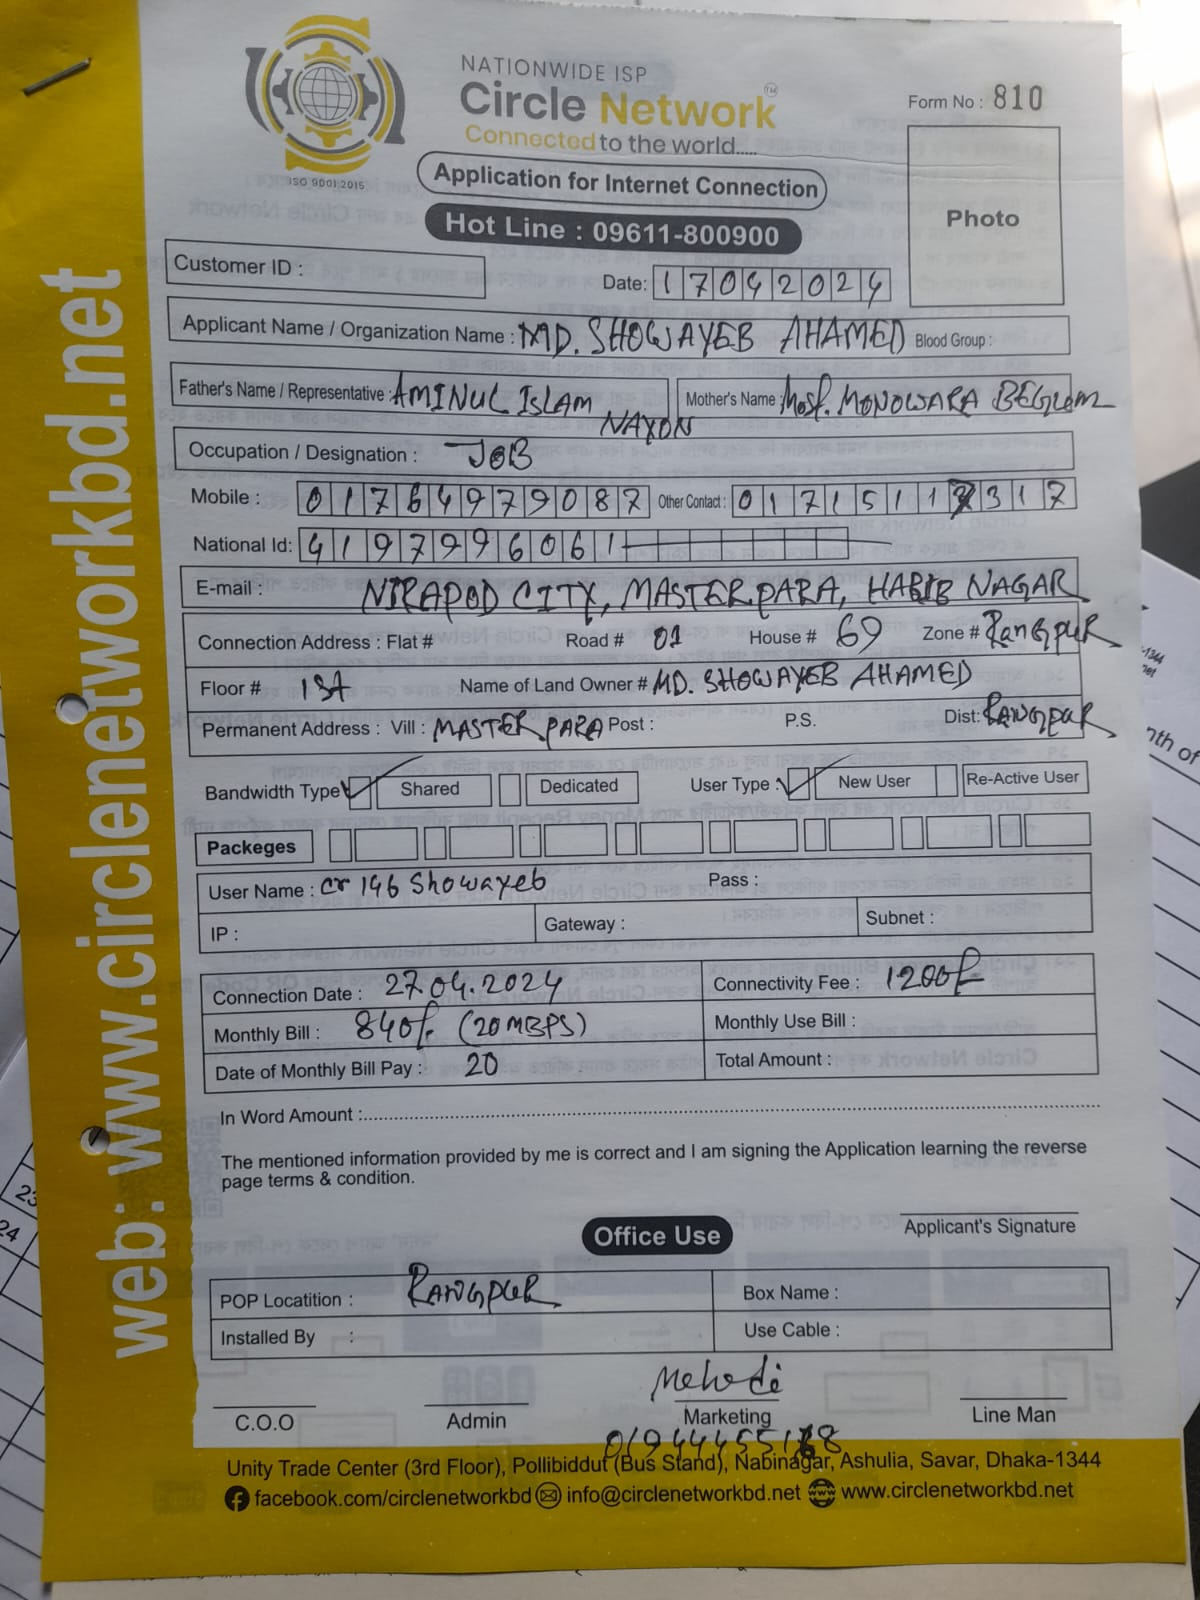 NATIONWIDE ISP
Circle Network TM
Connected to the world.....
ISO 9001:2015
Form No : 810
Photo
Application for Internet Connection
Hot Line : 09611-800900
Customer ID :
Date: 17042024
Applicant Name / Organization Name : MD. SHOWAYEB AHAMED Blood Group :
Father's Name / Representative : AMINUL ISLAM NAYON Mother's Name : Mosf. MONOWARA BEGUM
Occupation / Designation : JOB
Mobile : 01764979087 Other Contact : 01715117317
National Id: 4197996061
E-mail : NIRAPOD CITY, MASTERPARA, HABIB NAGAR
Connection Address : Flat # Road # 01 House # 69 Zone # Rangpur
Floor # 1st Name of Land Owner # MD. SHOWAYEB AHAMED
Permanent Address : Vill : MASTER PARA Post : P.S. Dist: RANGPUR
Bandwidth Type Shared Dedicated User Type : New User Re-Active User
Packeges
User Name : cr 146 Showayeb Pass :
IP : Gateway : Subnet :
Connection Date : 27.04.2024 Connectivity Fee : 1200/-
Monthly Bill : 840/- (20MBPS) Monthly Use Bill :
Date of Monthly Bill Pay : 20 Total Amount :
In Word Amount :
The mentioned information provided by me is correct and I am signing the Application learning the reverse
page terms & condition.
Applicant's Signature
Office Use
POP Locatition : RANGPUR Box Name :
Installed By : Use Cable :
Mehedi
C.O.O Admin Marketing Line Man
Unity Trade Center (3rd Floor), Pollibiddut (Bus Stand), Nabinagar, Ashulia, Savar, Dhaka-1344
facebook.com/circlenetworkbd info@circlenetworkbd.net www.circlenetworkbd.net
web: www.circlenetworkbd.net